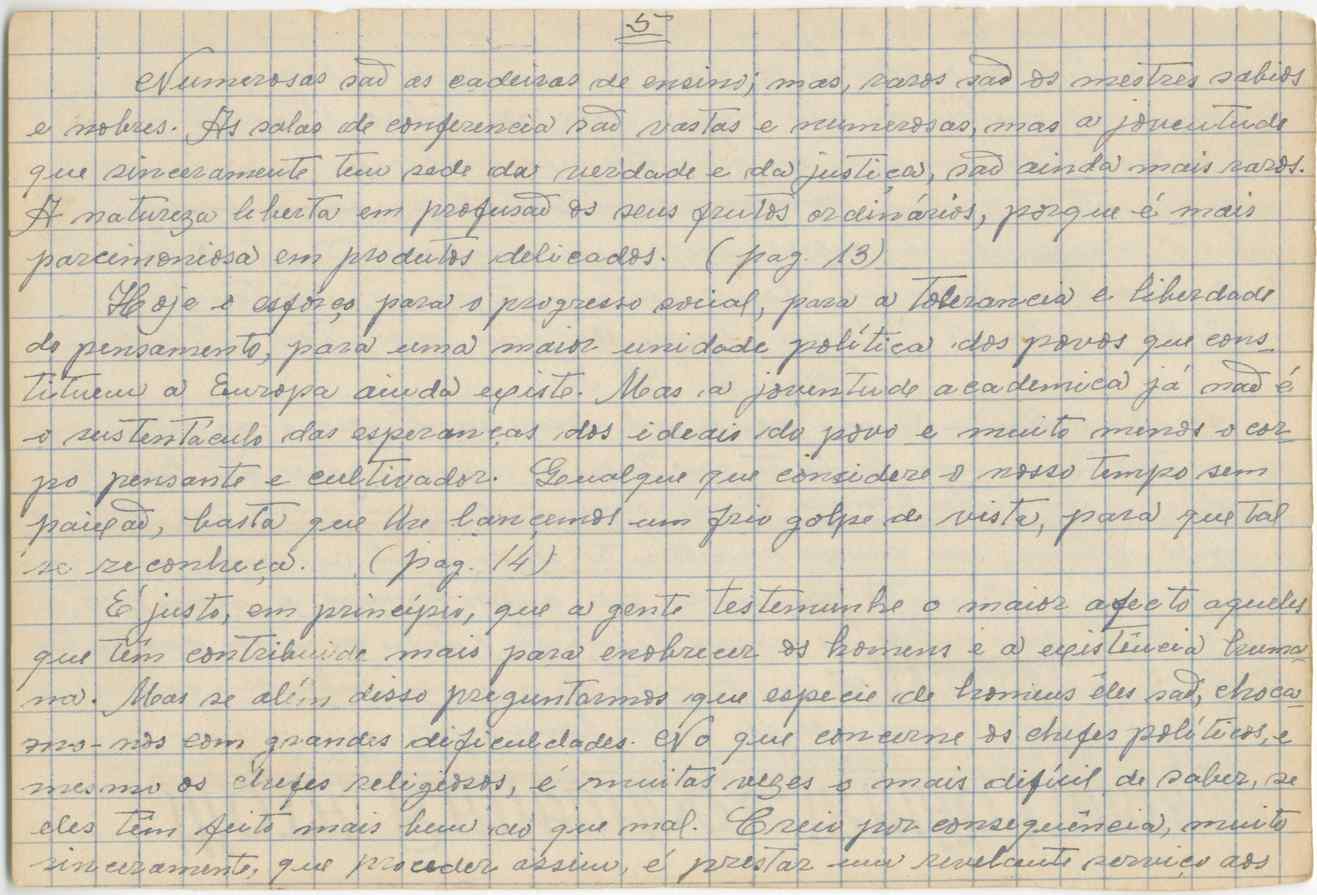 5
Numerosas são as cadeiras de ensino; mas, raros são os mestres sabios
e nobres. As salas de conferencia são vastas e numerosas, mas a joventude
que sinceramente tem sede da verdade e da justiça, são ainda mais raros.
A natureza liberta em profusão os seus frutos ordinários, porque é mais
parcimoniosa em produtos delicados. (pag. 13)
Hoje o esforço para o progresso social, para a tolerancia e liberdade
do pensamento, para uma maior unidade política dos povos que cons-
tituem a Europa ainda existe. Mas a joventude academica já não é
o sustentáculo das esperanças dos ideais do povo e muito menos o cor-
po pensante e cultivador. Qualque que considere o nosso tempo sem
paixão, basta que lhe lançemos um frio golpe de vista, para que tal
se reconheça. (pag. 14)
É justo, em princípio, que a gente testemunhe o maior afecto aqueles
que têm contribuido mais para enobrecer os homens e a existência huma-
na. Mas se além disso preguntarmos que especie de homens êles são, choca-
mo-nos com grandes dificuldades. No que concerne os chefes políticos, e
mesmo os chefes religiosos, é muitas vezes o mais difícil de saber, se
eles têm feito mais bem do que mal. Creio por consequência, muito
sinceramente, que proceder assim, é prestar um revelante serviço aos